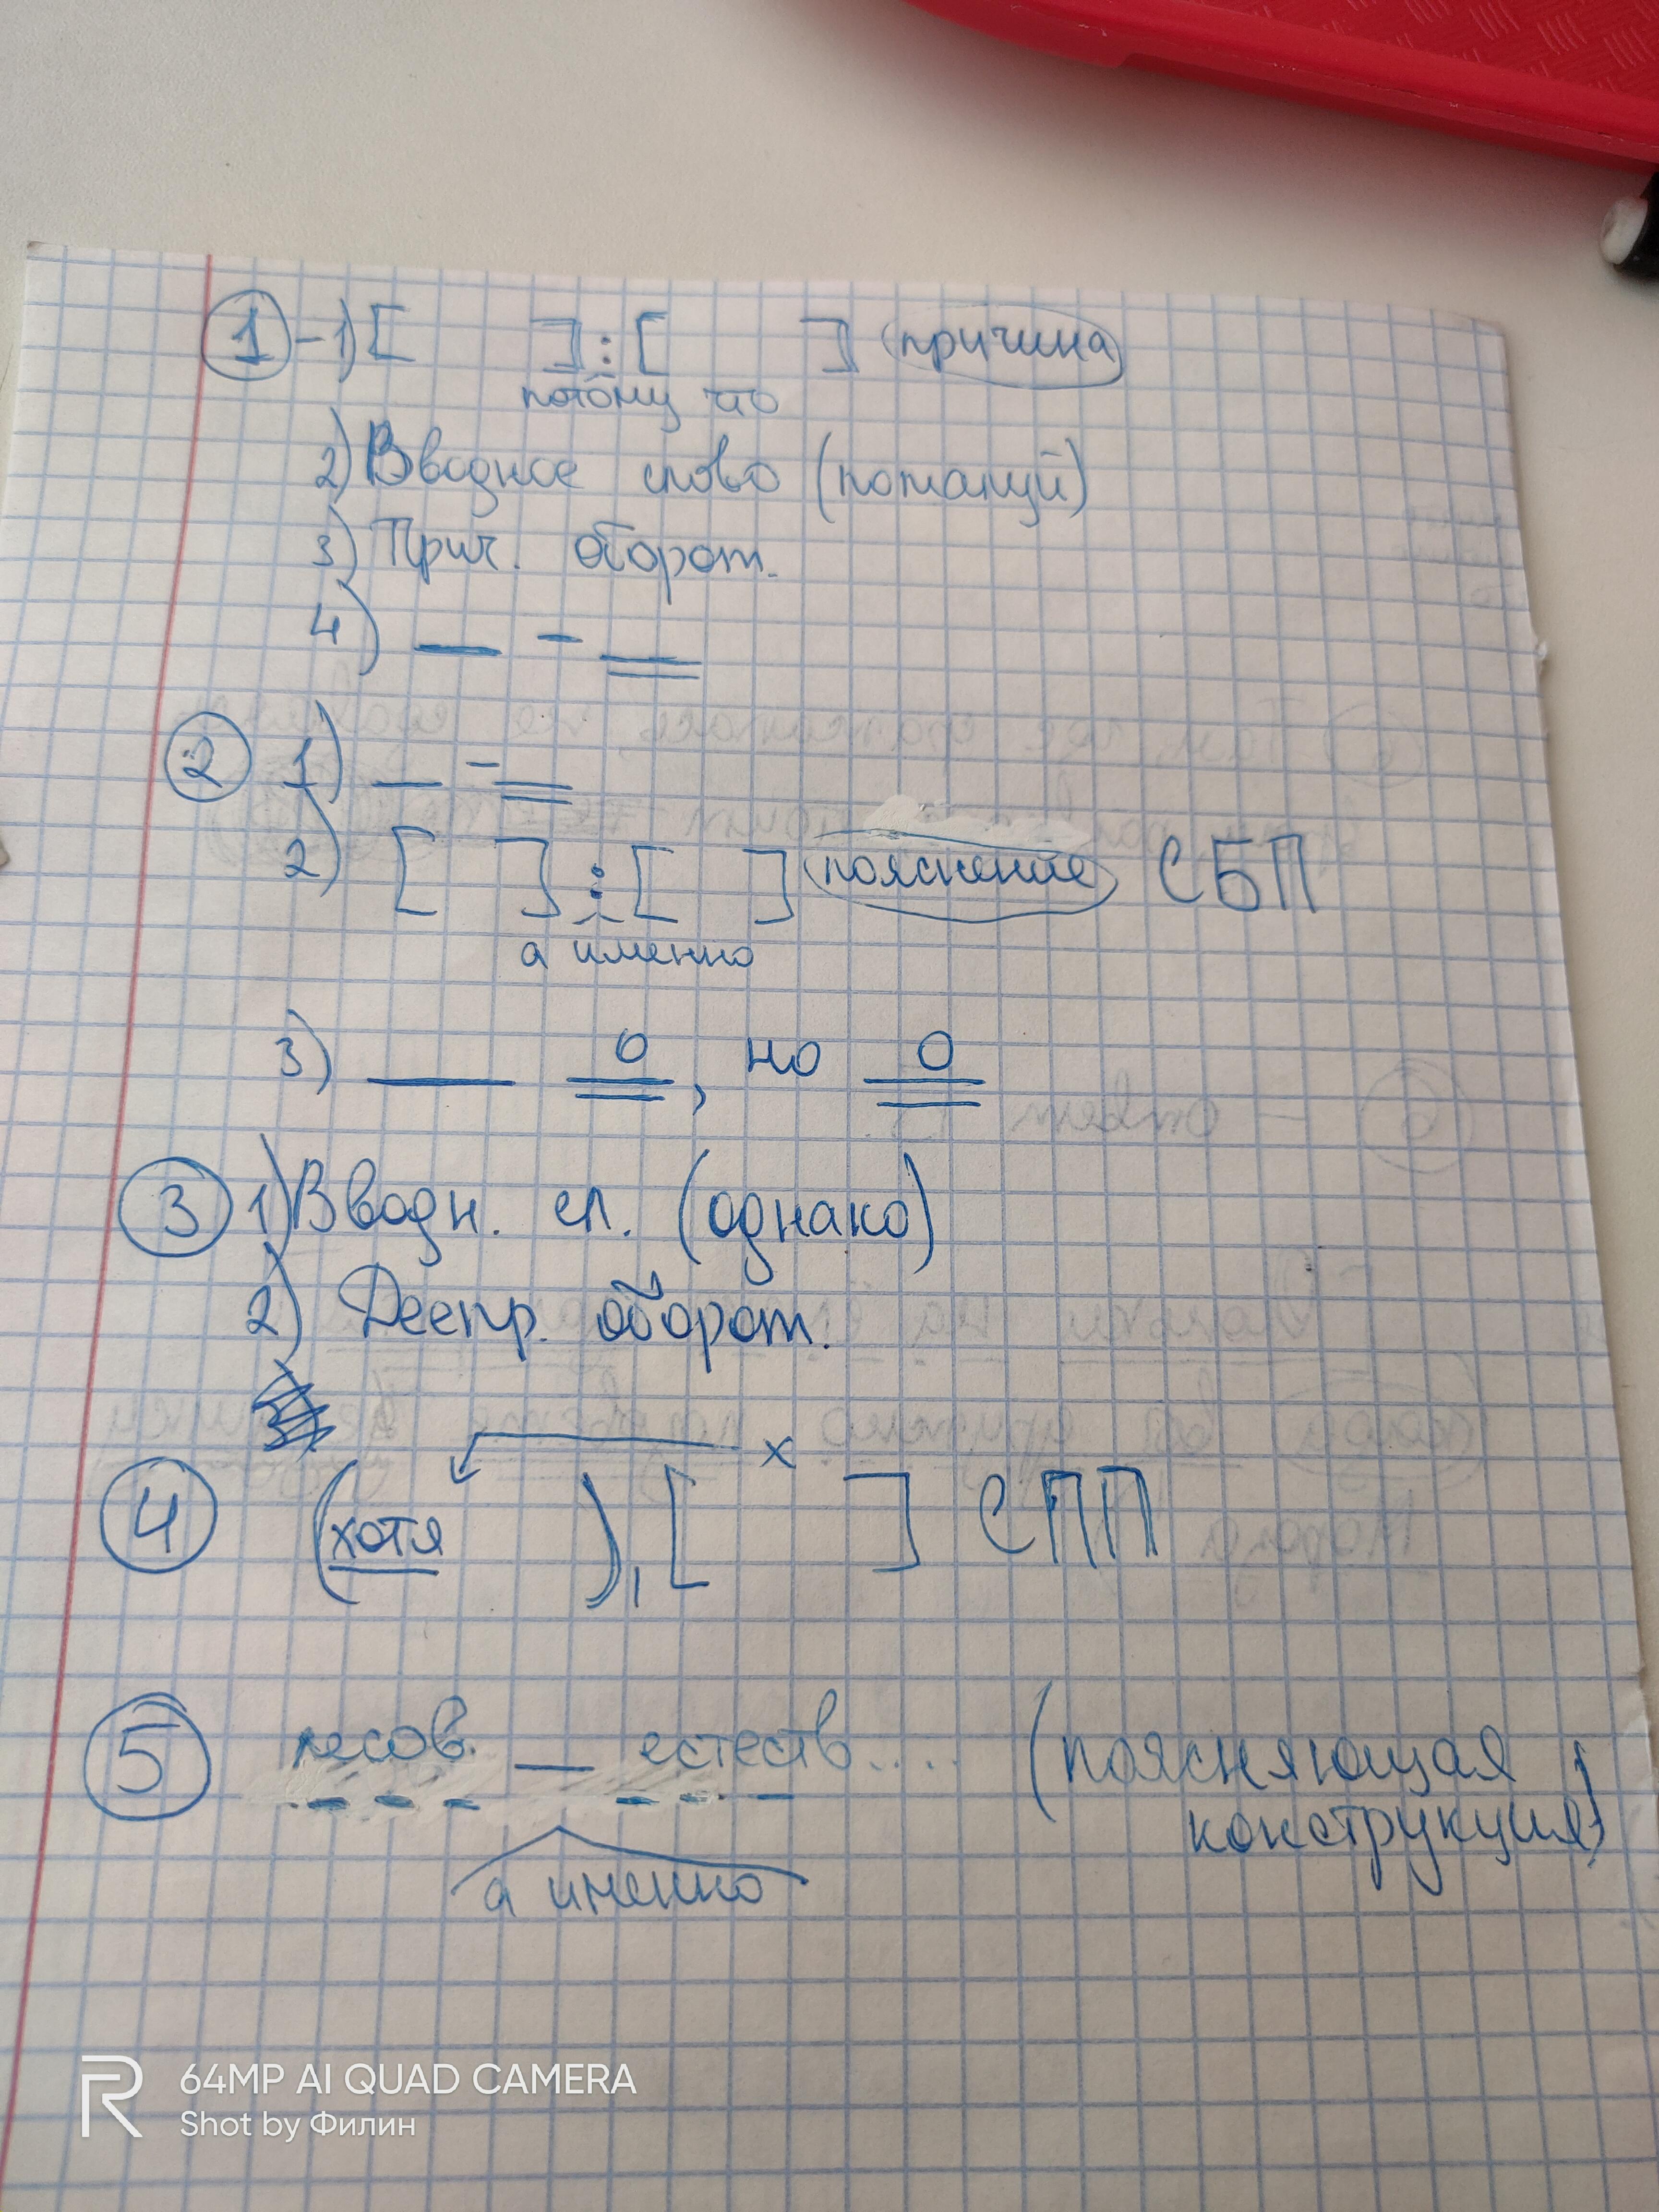 1 - 1) [ ] : [ ] причина
потому что
2) Вводное слово (пожалуй)
3) Прич. оборот.
4) — - =
2 1) — - =
2) [ ] : [ ] пояснение СБП
а именно
3) — О, но О
3 1) Вводн. сл. (однако)
2) Деепр. оборот.
x
4 (хотя ), [ ] СПП
5 лесов. — естеств.... (поясняющая
конструкция)
а именно
64MP AI QUAD CAMERA
Shot by Филин